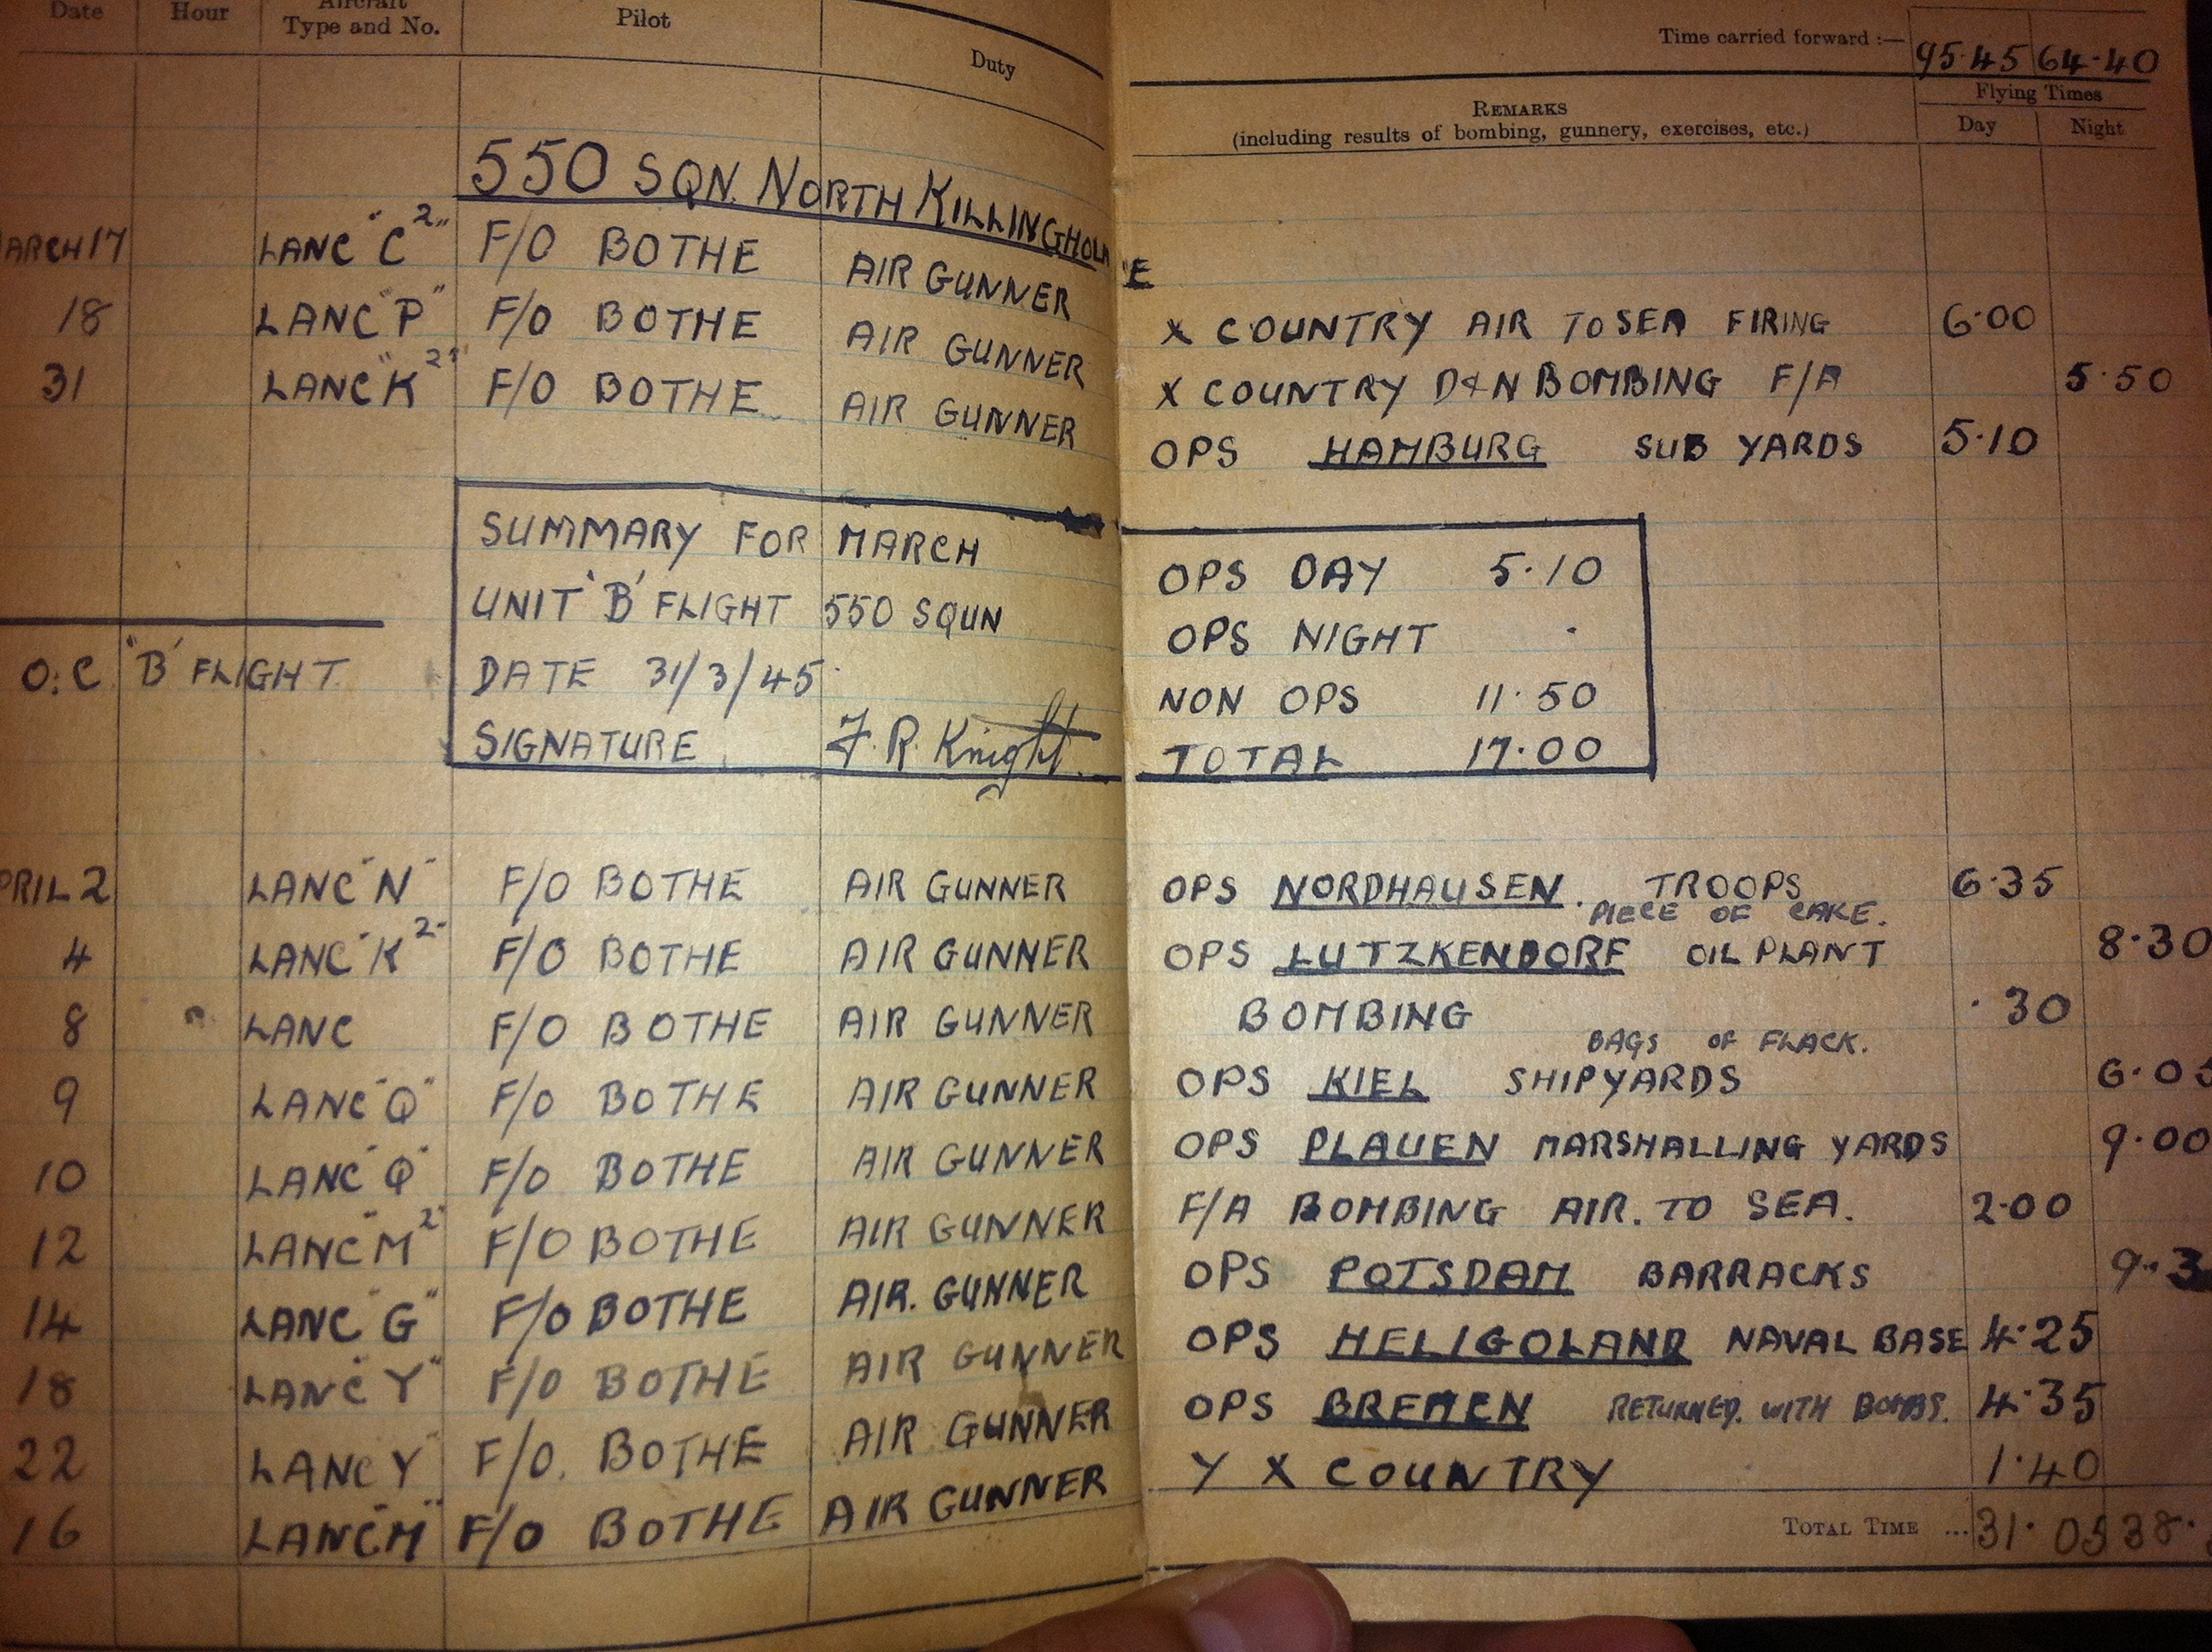 Date Hour Aircraft Type and No. Pilot Duty
Time carried forward :— 95·45 64·40
REMARKS
(including results of bombing, gunnery, exercises, etc.)
Flying Times
Day Night
550 SQN. NORTH KILLINGHOLME
MARCH 17 LANC "C2" F/O BOTHE AIR GUNNER X COUNTRY AIR TO SEA FIRING 6·00
18 LANC "P" F/O BOTHE AIR GUNNER X COUNTRY D&N BOMBING F/A 5·50
31 LANC "K2" F/O BOTHE AIR GUNNER OPS HAMBURG SUB YARDS 5·10
SUMMARY FOR MARCH OPS DAY 5·10
UNIT 'B' FLIGHT 550 SQUN OPS NIGHT ·
O.C 'B' FLIGHT DATE 31/3/45 NON OPS 11·50
SIGNATURE F. R. Knight TOTAL 17·00
APRIL 2 LANC "N" F/O BOTHE AIR GUNNER OPS NORDHAUSEN. TROOPS 6·35
PIECE OF CAKE.
4 LANC "K2" F/O BOTHE AIR GUNNER OPS LUTZKENDORF OIL PLANT 8·30
8 LANC F/O BOTHE AIR GUNNER BOMBING ·30
BAGS OF FLACK.
9 LANC "Q" F/O BOTHE AIR GUNNER OPS KIEL SHIPYARDS 6·05
10 LANC "Q" F/O BOTHE AIR GUNNER OPS PLAUEN MARSHALLING YARDS 9·00
12 LANC "M2" F/O BOTHE AIR GUNNER F/A BOMBING AIR. TO SEA. 2·00
14 LANC "G" F/O BOTHE AIR. GUNNER OPS POTSDAM BARRACKS 9·3
18 LANC "Y" F/O BOTHE AIR GUNNER OPS HELIGOLAND NAVAL BASE 4·25
22 LANC Y" F/O. BOTHE AIR GUNNER OPS BREMEN RETURNED. WITH BOMBS. 4·35
16 LANC "M" F/O BOTHE AIR GUNNER Y X COUNTRY 1·40
TOTAL TIME ... 31·05 38·